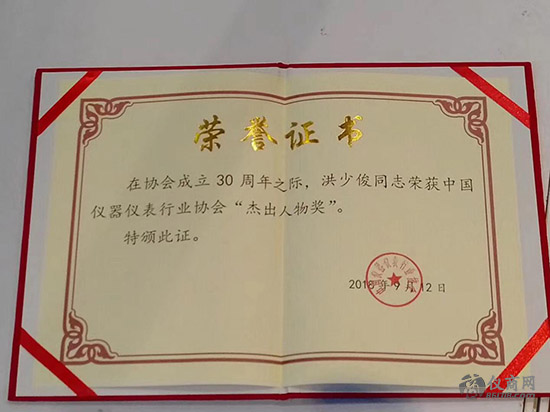 荣誉证书
在协会成立 30 周年之际，洪少俊同志荣获中国
仪器仪表行业协会“杰出人物奖”。
特颁此证。
2018 年 9 月 12 日
仪商网